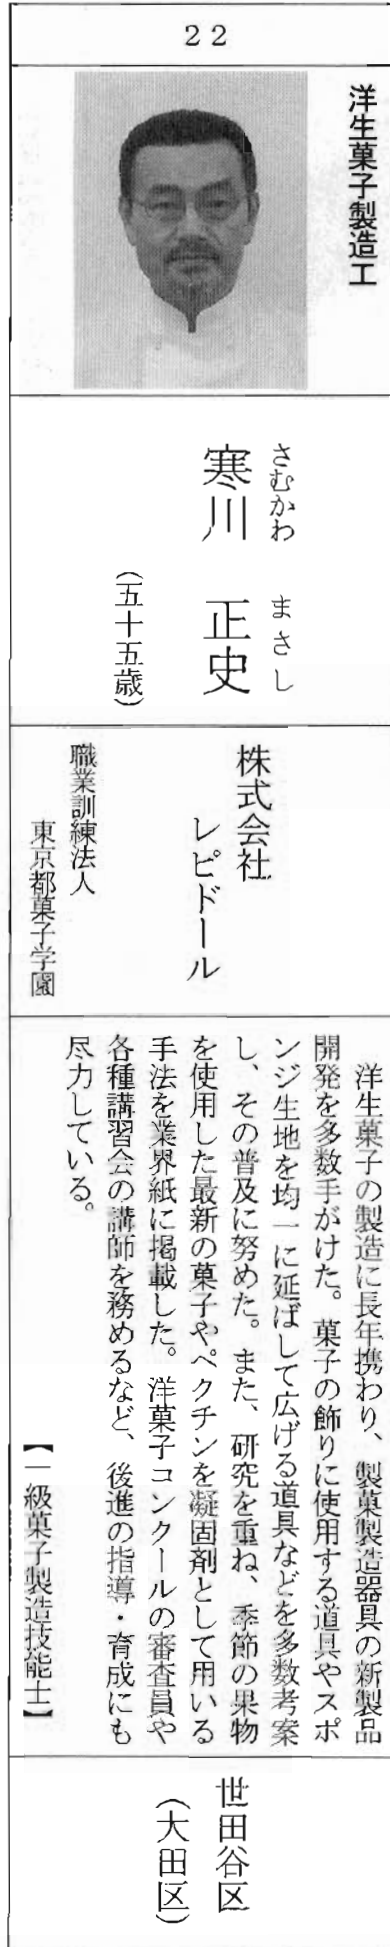 22
洋生菓子製造工
さむかわ　まさし
寒川　正史
（五十五歳）
株式会社
レピドール
職業訓練法人
東京都菓子学園
洋生菓子の製造に長年携わり、製菓製造器具の新製品
開発を多数手がけた。菓子の飾りに使用する道具やスポ
ンジ生地を均一に延ばして広げる道具などを多数考案
し、その普及に努めた。また、研究を重ね、季節の果物
を使用した最新の菓子やペクチンを凝固剤として用いる
手法を業界紙に掲載した。洋菓子コンクールの審査員や
各種講習会の講師を務めるなど、後進の指導・育成にも
尽力している。
【一級菓子製造技能士】
世田谷区
（大田区）